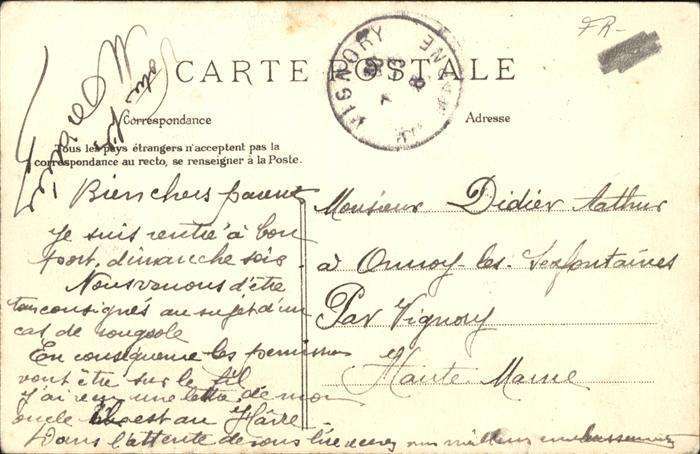 FR-
CARTE POSTALE
VIGNORY
Correspondance
Adresse
Tous les pays étrangers n'acceptent pas la
correspondance au recto, se renseigner à la Poste.
Bien chers parents
Je suis rentré à bon
port, dimanche soir
Nous venons d'être
consignés au sujet d'un
cas de rougeole
En conséquence les permissions
vont être sur le fil
J'ai reçu une lettre de mon
oncle est au Hâvre.
Dans l'attente de vous lire recevez mes meilleurs embrassements
Monsieur Didier Arthur
à Ormoy-les-Sexfontaines
Par Vignory
Haute Marne